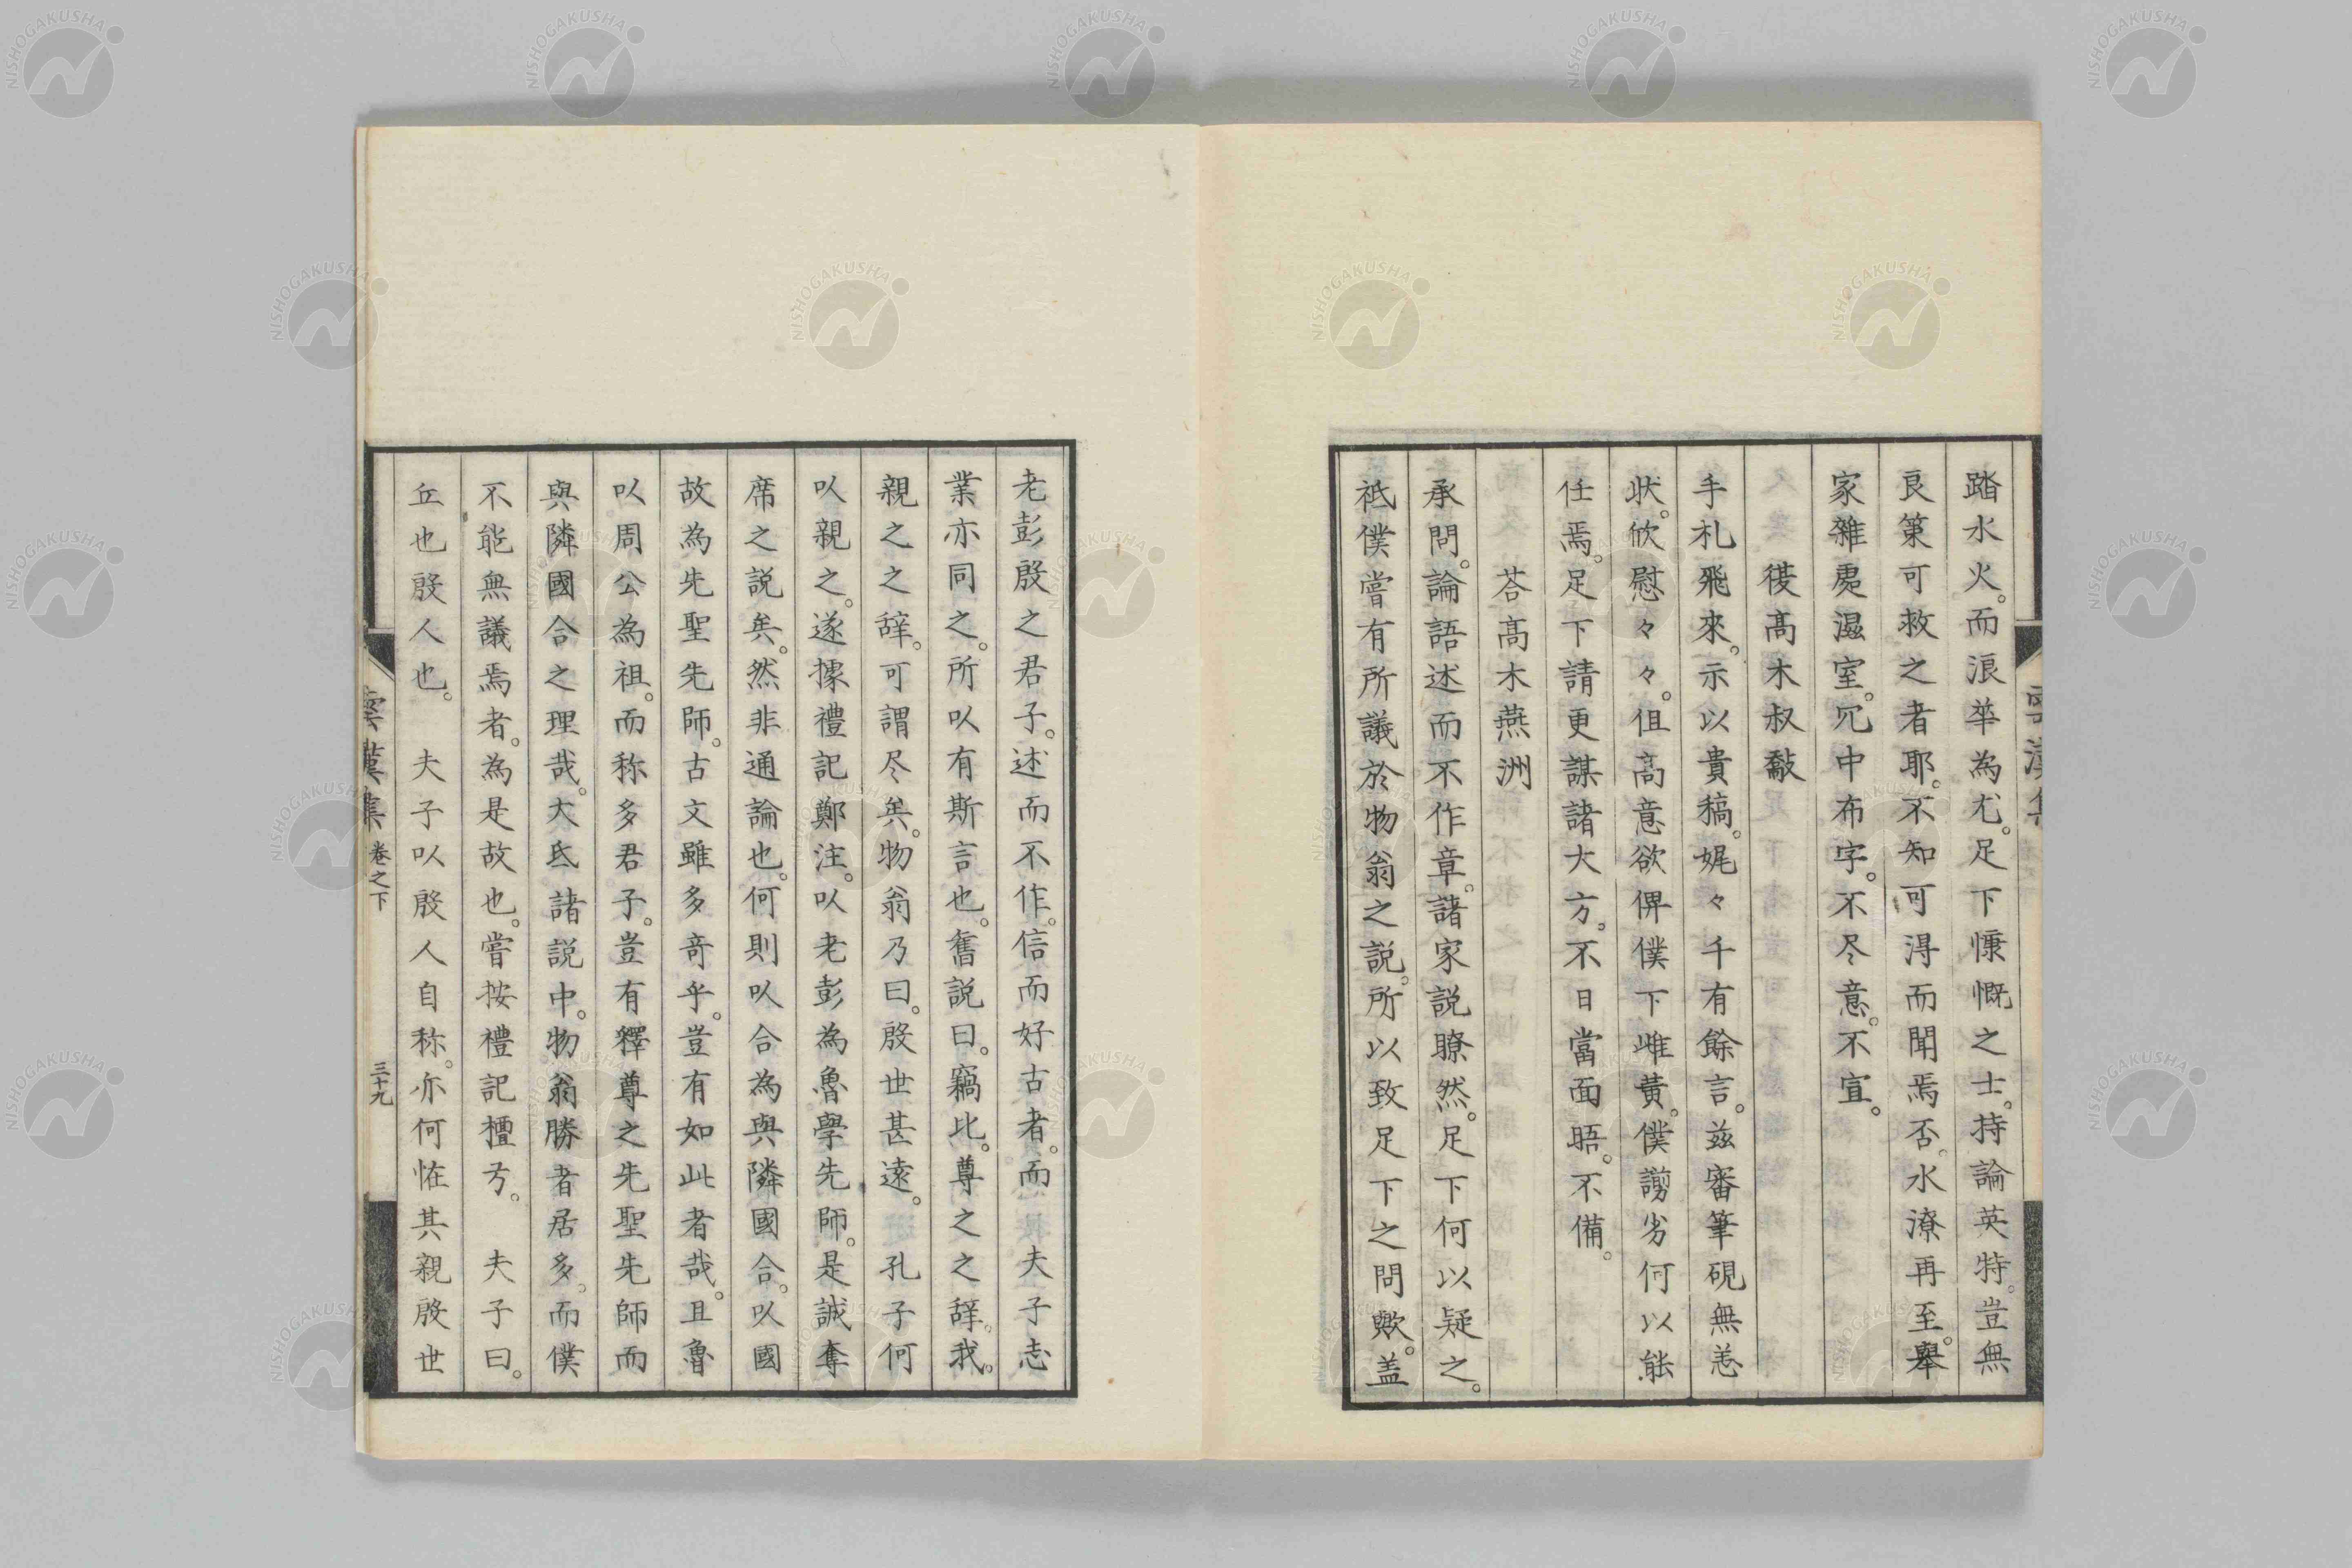 踏水火。而浪華為尤。足下慷慨之士。持論英特。豈無
良策可救之者耶。不知可得而聞焉否。水潦再至。舉
家雜處濕室。冗中布字。不尽意。不宣。
復高木叔觳
手札飛來。示以貴稿。娓々千有餘言。兹審筆硯無恙
状。欣慰々々。但高意欲俾僕下雌黄。僕謭劣何以能
任焉。足下請更謀諸大方。不日當面晤。不備。
荅髙木燕洲
承問。論語述而不作章。諸家説瞭然。足下何以疑之。
祇僕嘗有所議於物翁之説。所以致足下之問歟。盖
雲漢集
老彭殷之君子。述而不作。信而好古者。而 夫子志
業亦同之。所以有斯言也。舊説曰。竊比。尊之之辞。我。
親之之辞。可謂尽矣。物翁乃曰。殷世甚遠。 孔子何
以親之。遂據禮記鄭注。以老彭為魯學先師。是誠奪
席之説矣。然非通論也。何則以合為與隣國合。以國
故為先聖先師。古文雖多竒乎。豈有如此者哉。且魯
以周公為祖。而称多君子。豈有釋尊之先聖先師而
與隣國合之理哉。大氐諸説中。物翁勝者居多。而僕
不能無議焉者。為是故也。嘗按禮記檀弓。 夫子曰。
丘也殷人也。 夫子以殷人自称。亦何恠其親殷世
雲漢集 卷之下 三十九
NISHOGAKUSHA